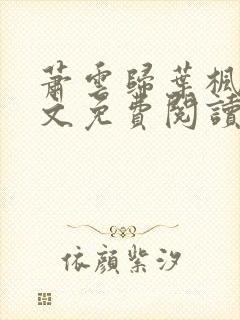 蕭雲歸葉楓
文免費閱讀
依顏紫汐